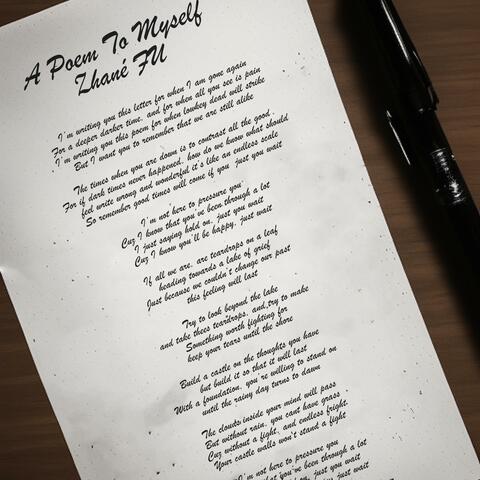 A Poem To Myself
Zhané FU
I'm writing you this letter for when I am gone again
For a deeper darker time, and for when all you see is pain
I'm writing you this poem for when lowkey dead will strike
But I want you to remember that we are still alike
The times when you are down is to contrast all the good.
For if dark times never happened, how do we know what should
feel write wrong and wonderful it's like an endless scale
So remember good times will come if you just you wait
I'm not here to pressure you
Cuz I know that you've been through a lot
I just saying hold on, just you wait
Cuz I know you'll be happy, just wait
If all we are, are teardrops on a leaf
heading towards a lake of grief
Just because we couldn't change our past
this feeling will last
Try to look beyond the lake
and take thees teardrops, and try to make
Something worth fighting for
keep your tears until the shore
Build a castle on the thoughts you have
but build it so that it will last
With a foundation, you're willing to stand on
until the rainy day turns to dawn
The clouds inside your mind will pass
But without rain, you cant have grass
Cuz without a fight, and endless fright,
Your castle walls won't stand a fight
I'm not here to pressure you
that you've been through a lot
on, just you wait
just wait